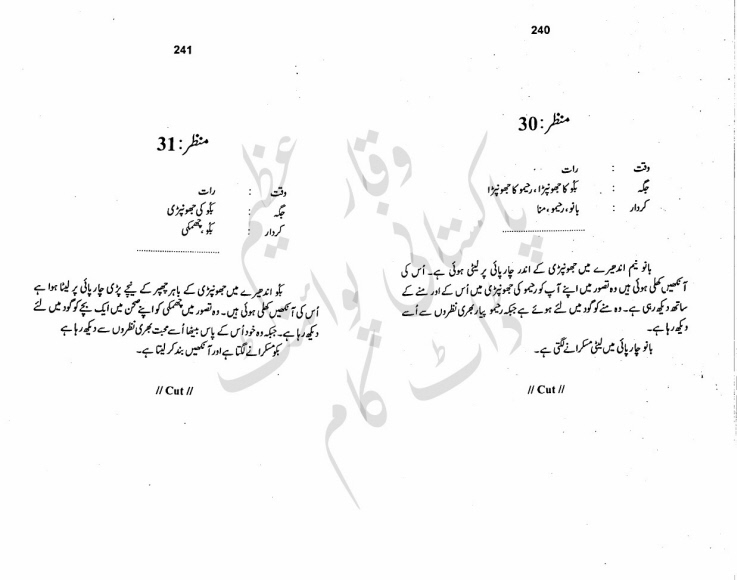 240
منظر:30
وقت : رات
جگہ : بگو کا جھونپڑا، رحیمو کا جھونپڑا
کردار : بانو، رحیمو، منا
بانو نیم اندھیرے میں جھونپڑی کے اندر چارپائی پر لیٹی ہوئی ہے۔ اُس کی
آنکھیں کھلی ہوئی ہیں وہ تصور میں اپنے آپ کو رحیمو کی جھونپڑی میں اُس کے اور منے کے
ساتھ دیکھ رہی ہے۔ وہ منے کو گود میں لئے ہوئے ہے جبکہ رحیمو پیار بھری نظروں سے اُسے
دیکھ رہا ہے۔
بانو چارپائی میں لیٹی مسکرانے لگتی ہے۔
// Cut //
241
منظر:31
وقت : رات
جگہ : بگو کی جھونپڑی
کردار : بگو، چھمکی
بگو اندھیرے میں جھونپڑی کے باہر چھپر کے نیچے پڑی چارپائی پر لیٹا ہوا ہے
اُس کی آنکھیں کھلی ہوئی ہیں۔ وہ تصور میں چھمکی کو اپنے صحن میں ایک بچے کو گود میں لئے
دیکھ رہا ہے۔ جبکہ وہ خود اُس کے پاس بیٹھا اُسے محبت بھری نظروں سے دیکھ رہا ہے
بگو مسکرانے لگتا ہے اور آنکھیں بند کر لیتا ہے۔
// Cut //
وقار عظیم
پاکستانی پوائنٹ
ڈاٹ کام